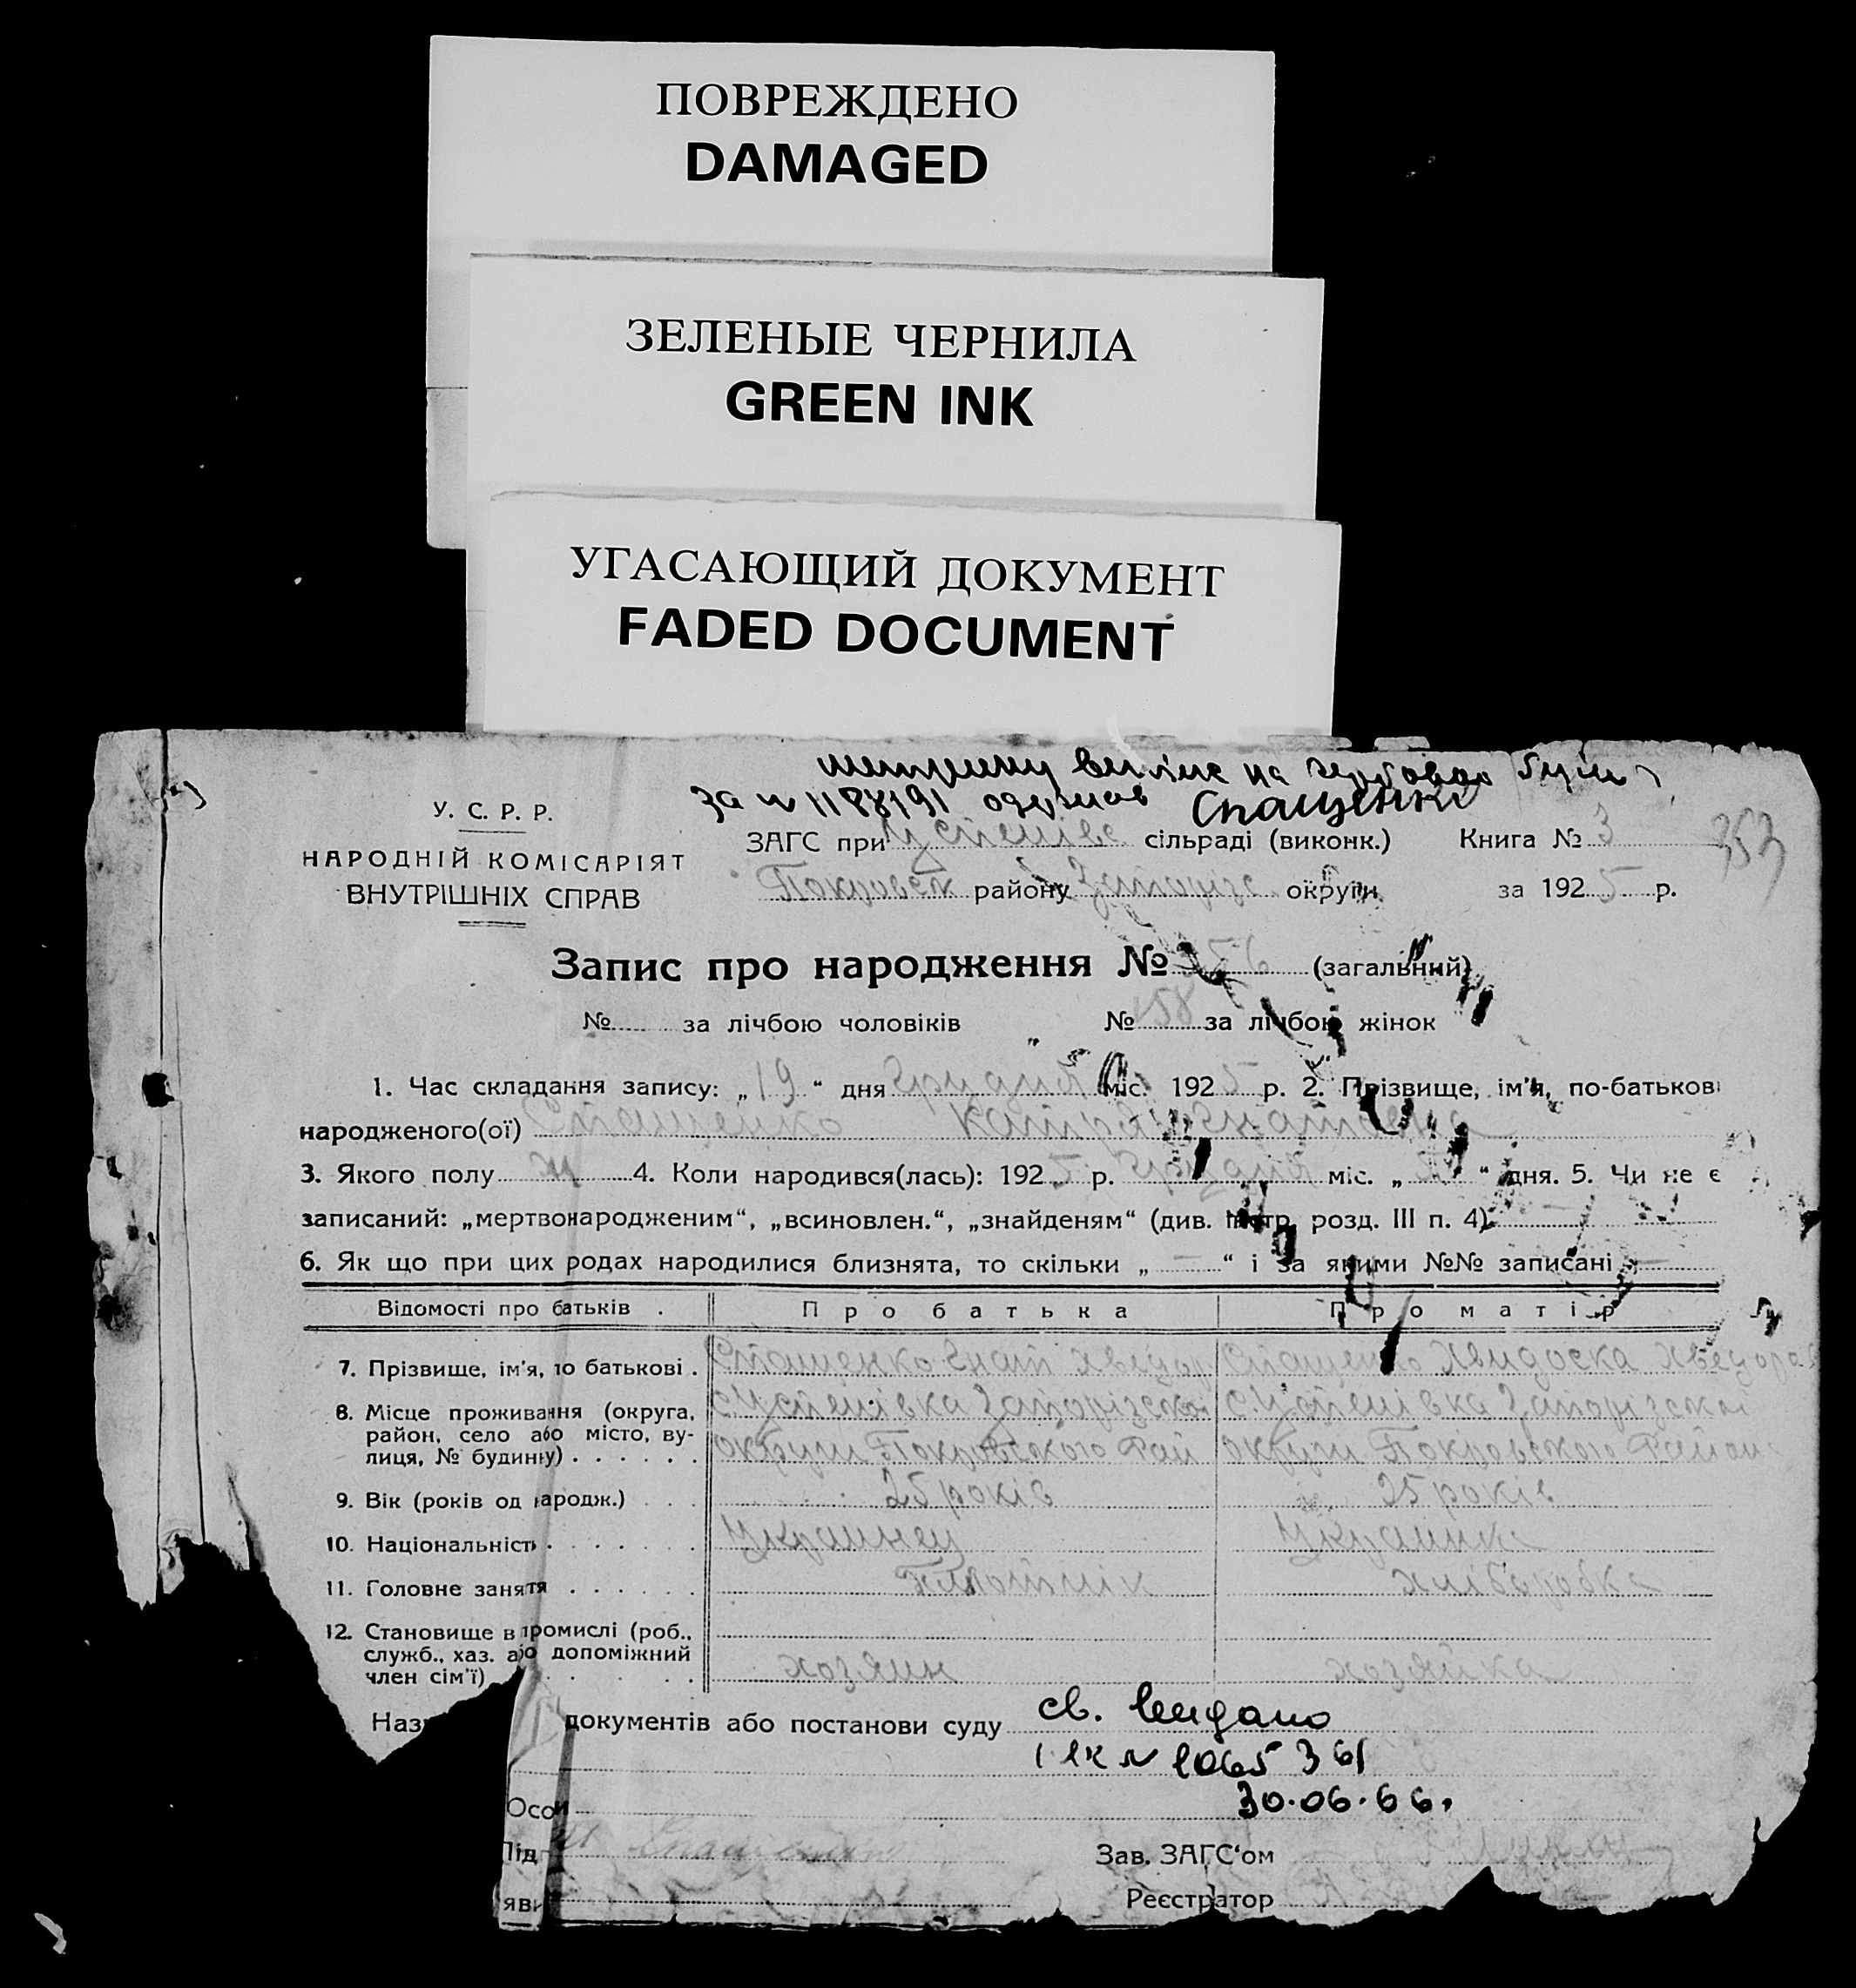 ПОВРЕЖДЕНО
DAMAGED
ЗЕЛЕНЫЕ ЧЕРНИЛА
GREEN INK
УГАСАЮЩИЙ ДОКУМЕНТ
FADED DOCUMENT
на гербовом
за № одержав Спащенко
У. С. Р. Р.
НАРОДНІЙ КОМІСАРІЯТ
ВНУТРІШНІХ СПРАВ
ЗАГС при Успенівс сільраді (виконк.) Книга № 3
353
Покровск району Запорізс округи за 1925 р.
Запис про народження № 256 (загальний)
№ за лічбою чоловіків № 158 за лічбою жінок
1. Час складання запису: „19“ дня Грудня міс. 1925 р. 2. Прізвище, ім'я, по-батькові
народженого(ої) Спащенко Катря Гнатовна
3. Якого полу ж 4. Коли народився(лась): 1925 р. Грудня міс. „ “ дня. 5. Чи не є
записаний: „мертвонародженим“, „всиновлен.“, „знайденям“ (див. інстр. розд. III п. 4) —
6. Як що при цих родах народилися близнята, то скільки „ — “ і за якими №№ записані —
Відомості про батьків . Про батька Про матір
7. Прізвище, ім'я, по батькові . Спащенко Гнат Хведор Спащенко Хведоска Хведоров
8. Місце проживання (округа, район, село або місто, вулиця, № будинку) . . . . . . с. Успенівка Запорізской округи Покровского Рай с. Успенівка Запорізской округи Покровского Району
9. Вік (років од народж.) . . . 25 років 25 років
10. Національність . . . . . . Украинец Украинка
11. Головне занятя . . . . . . Плотнік хліборобка
12. Становище в промислі (роб., служб., хаз. або допоміжний член сім'ї) . . . . . хозяин хозяйка
Наз документів або постанови суду св. видано
№ 1065361
30.06.66.
Осо
Під Спащенко Зав. ЗАГС'ом
яви Реєстратор